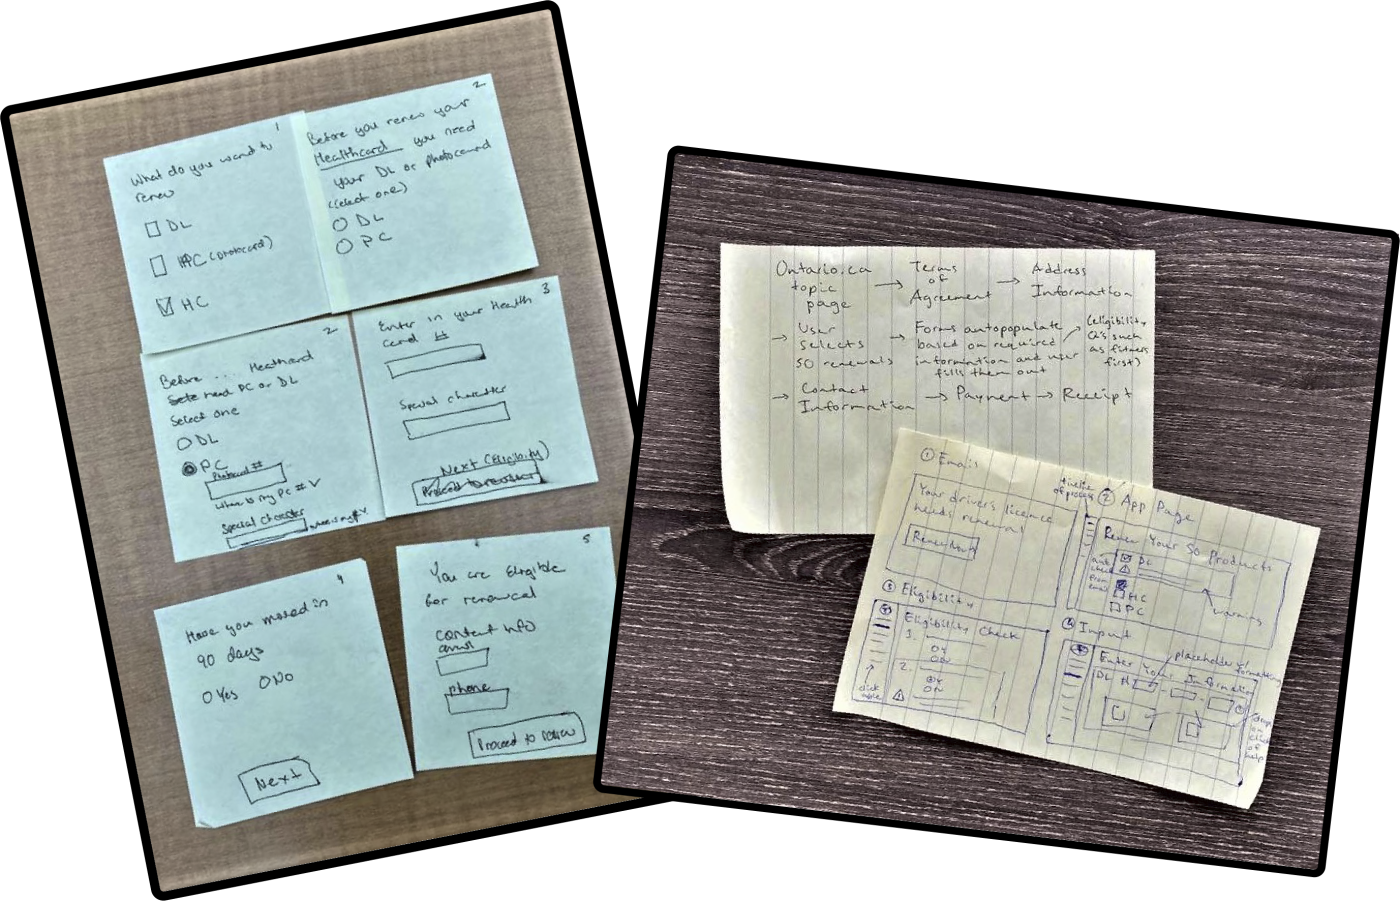 1
What do you want to
renew
DL
PC (photocard)
HC
2
Before you renew your
Healthcard you need
your DL or photocard
(select one)
DL
PC
2
Before .... Healthcard
need PC or DL
Select one
DL
PC
Photocard #
Where is my PC # V
Special character
3
Enter in your Health
card #
Special character
Next (Eligibility)
4
Have you moved in
90 days
Yes No
Next
5
You are Eligible
for renewal
contact info
email
phone
Proceed to review
Ontario.ca topic page → Terms of Agreement → Address Information
→ User selects SO renewals → Forms autopopulate based on required information and user fills them out (eligibility Q's such as fitness first)
→ Contact Information → Payment → Receipt
① Email
Your driver's licence
needs renewal
Renew Now
timeline
of process
② App Page
Renew Your SO Products
auto
check
from
email
DL
HC
PC
warning
③ Eligibility
Eligibility Check
1.
OY
ON
2.
OY
ON
click
able
④ Input
placeholder formatting
Enter Your Information
DL #
on
click
of
help